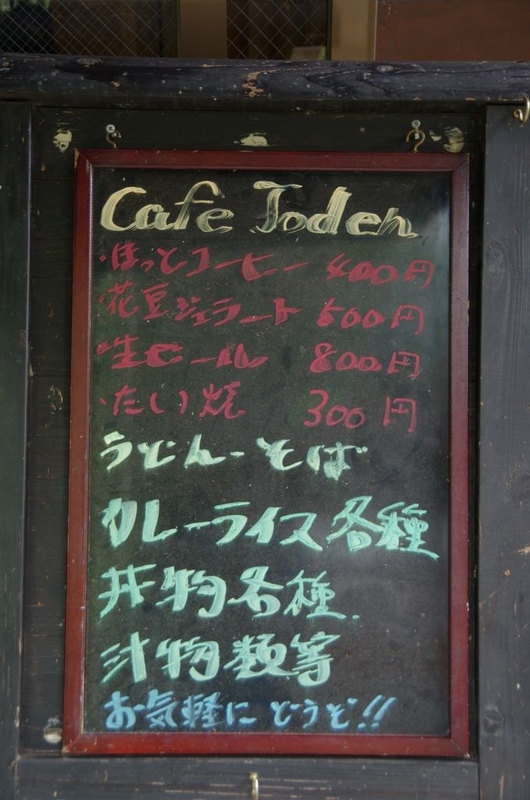 Cafe Joden
・ほっとコーヒー 400円
・花豆ジェラート 500円
・生ビール 800円
・たい焼 300円
うどん・そば
カレーライス各種
丼物各種.
汁物類等
お気軽にどうぞ!!